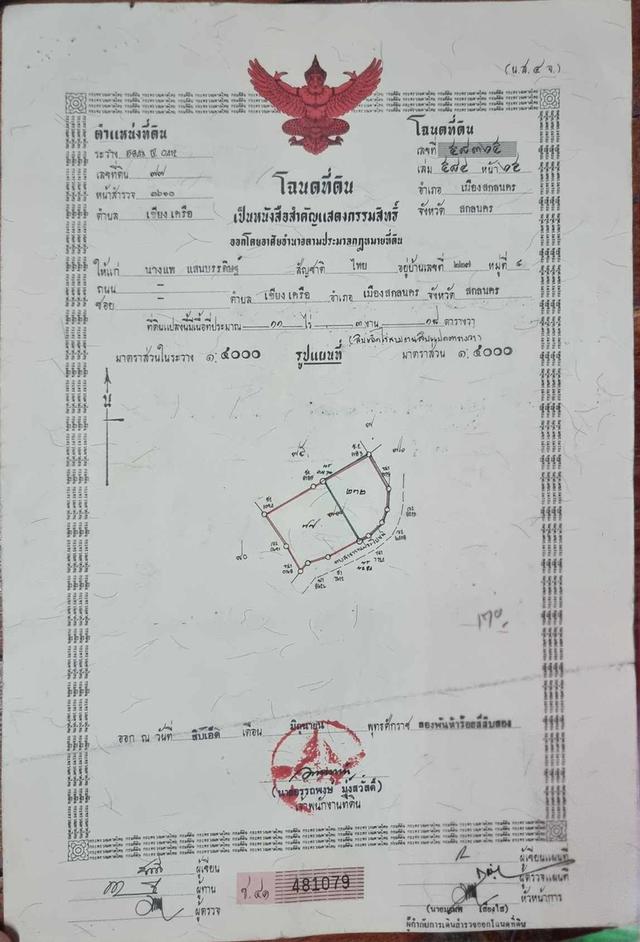 (น.ส.๔ จ.)
ตำแหน่งที่ดิน
ระวาง
เลขที่ดิน ๗๗
หน้าสำรวจ ๓๖๑๐
ตำบล เชียงเครือ
โฉนดที่ดิน
เลขที่ ๕๘๓๑๕
เล่ม ๕๘๔ หน้า ๑๕
อำเภอ เมืองสกลนคร
จังหวัด สกลนคร
โฉนดที่ดิน
เป็นหนังสือสำคัญแสดงกรรมสิทธิ์
ออกโดยอาศัยอำนาจตามประมวลกฎหมายที่ดิน
ให้แก่ นางแพ แสนบรรดิษฐ์ สัญชาติ ไทย อยู่บ้านเลขที่ ๒๒๗ หมู่ที่ ๘
ถนน –
ซอย – ตำบล เชียงเครือ อำเภอ เมืองสกลนคร จังหวัด สกลนคร
ที่ดินแปลงนี้มีเนื้อที่ประมาณ ๑๑ ไร่ ๓ งาน ๑๘ ตารางวา
(สิบเอ็ดไร่สามงานสิบแปดตารางวา)
มาตราส่วนในระวาง ๑:๕๐๐๐ รูปแผนที่ มาตราส่วน ๑:๕๐๐๐
น
๗
๗๕
๗๐
๒๓๒
๗๗
๘๐
ออก ณ วันที่ สิบเอ็ด เดือน มิถุนายน พุทธศักราช สองพันห้าร้อยสี่สิบสอง
(นายอรรถพงษ์ มุ่งสวัสดิ์)
เจ้าพนักงานที่ดิน
ผู้เขียน
ผู้ทาน
ผู้ตรวจ
ช.๔๑ 481079
ผู้เขียนแผนที่
ผู้ตรวจแผนที่
หัวหน้าการ
ผู้กำกับการเดินสำรวจออกโฉนดที่ดิน